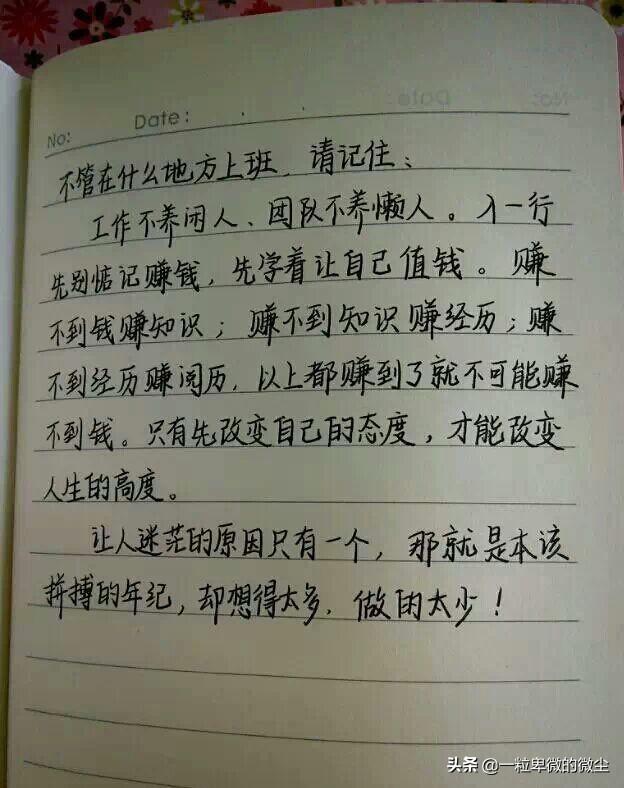 No:
Date:
不管在什么地方上班、请记住:
工作不养闲人、团队不养懒人。入一行
先别惦记赚钱，先学着让自己值钱。赚
不到钱赚知识；赚不到知识赚经历；赚
不到经历赚阅历、以上都赚到了就不可能赚
不到钱。只有先改变自己的态度，才能改变
人生的高度。
让人迷茫的原因只有一个，那就是本该
拼搏的年纪，却想得太多、做的太少！
头条 @一粒卑微的微尘